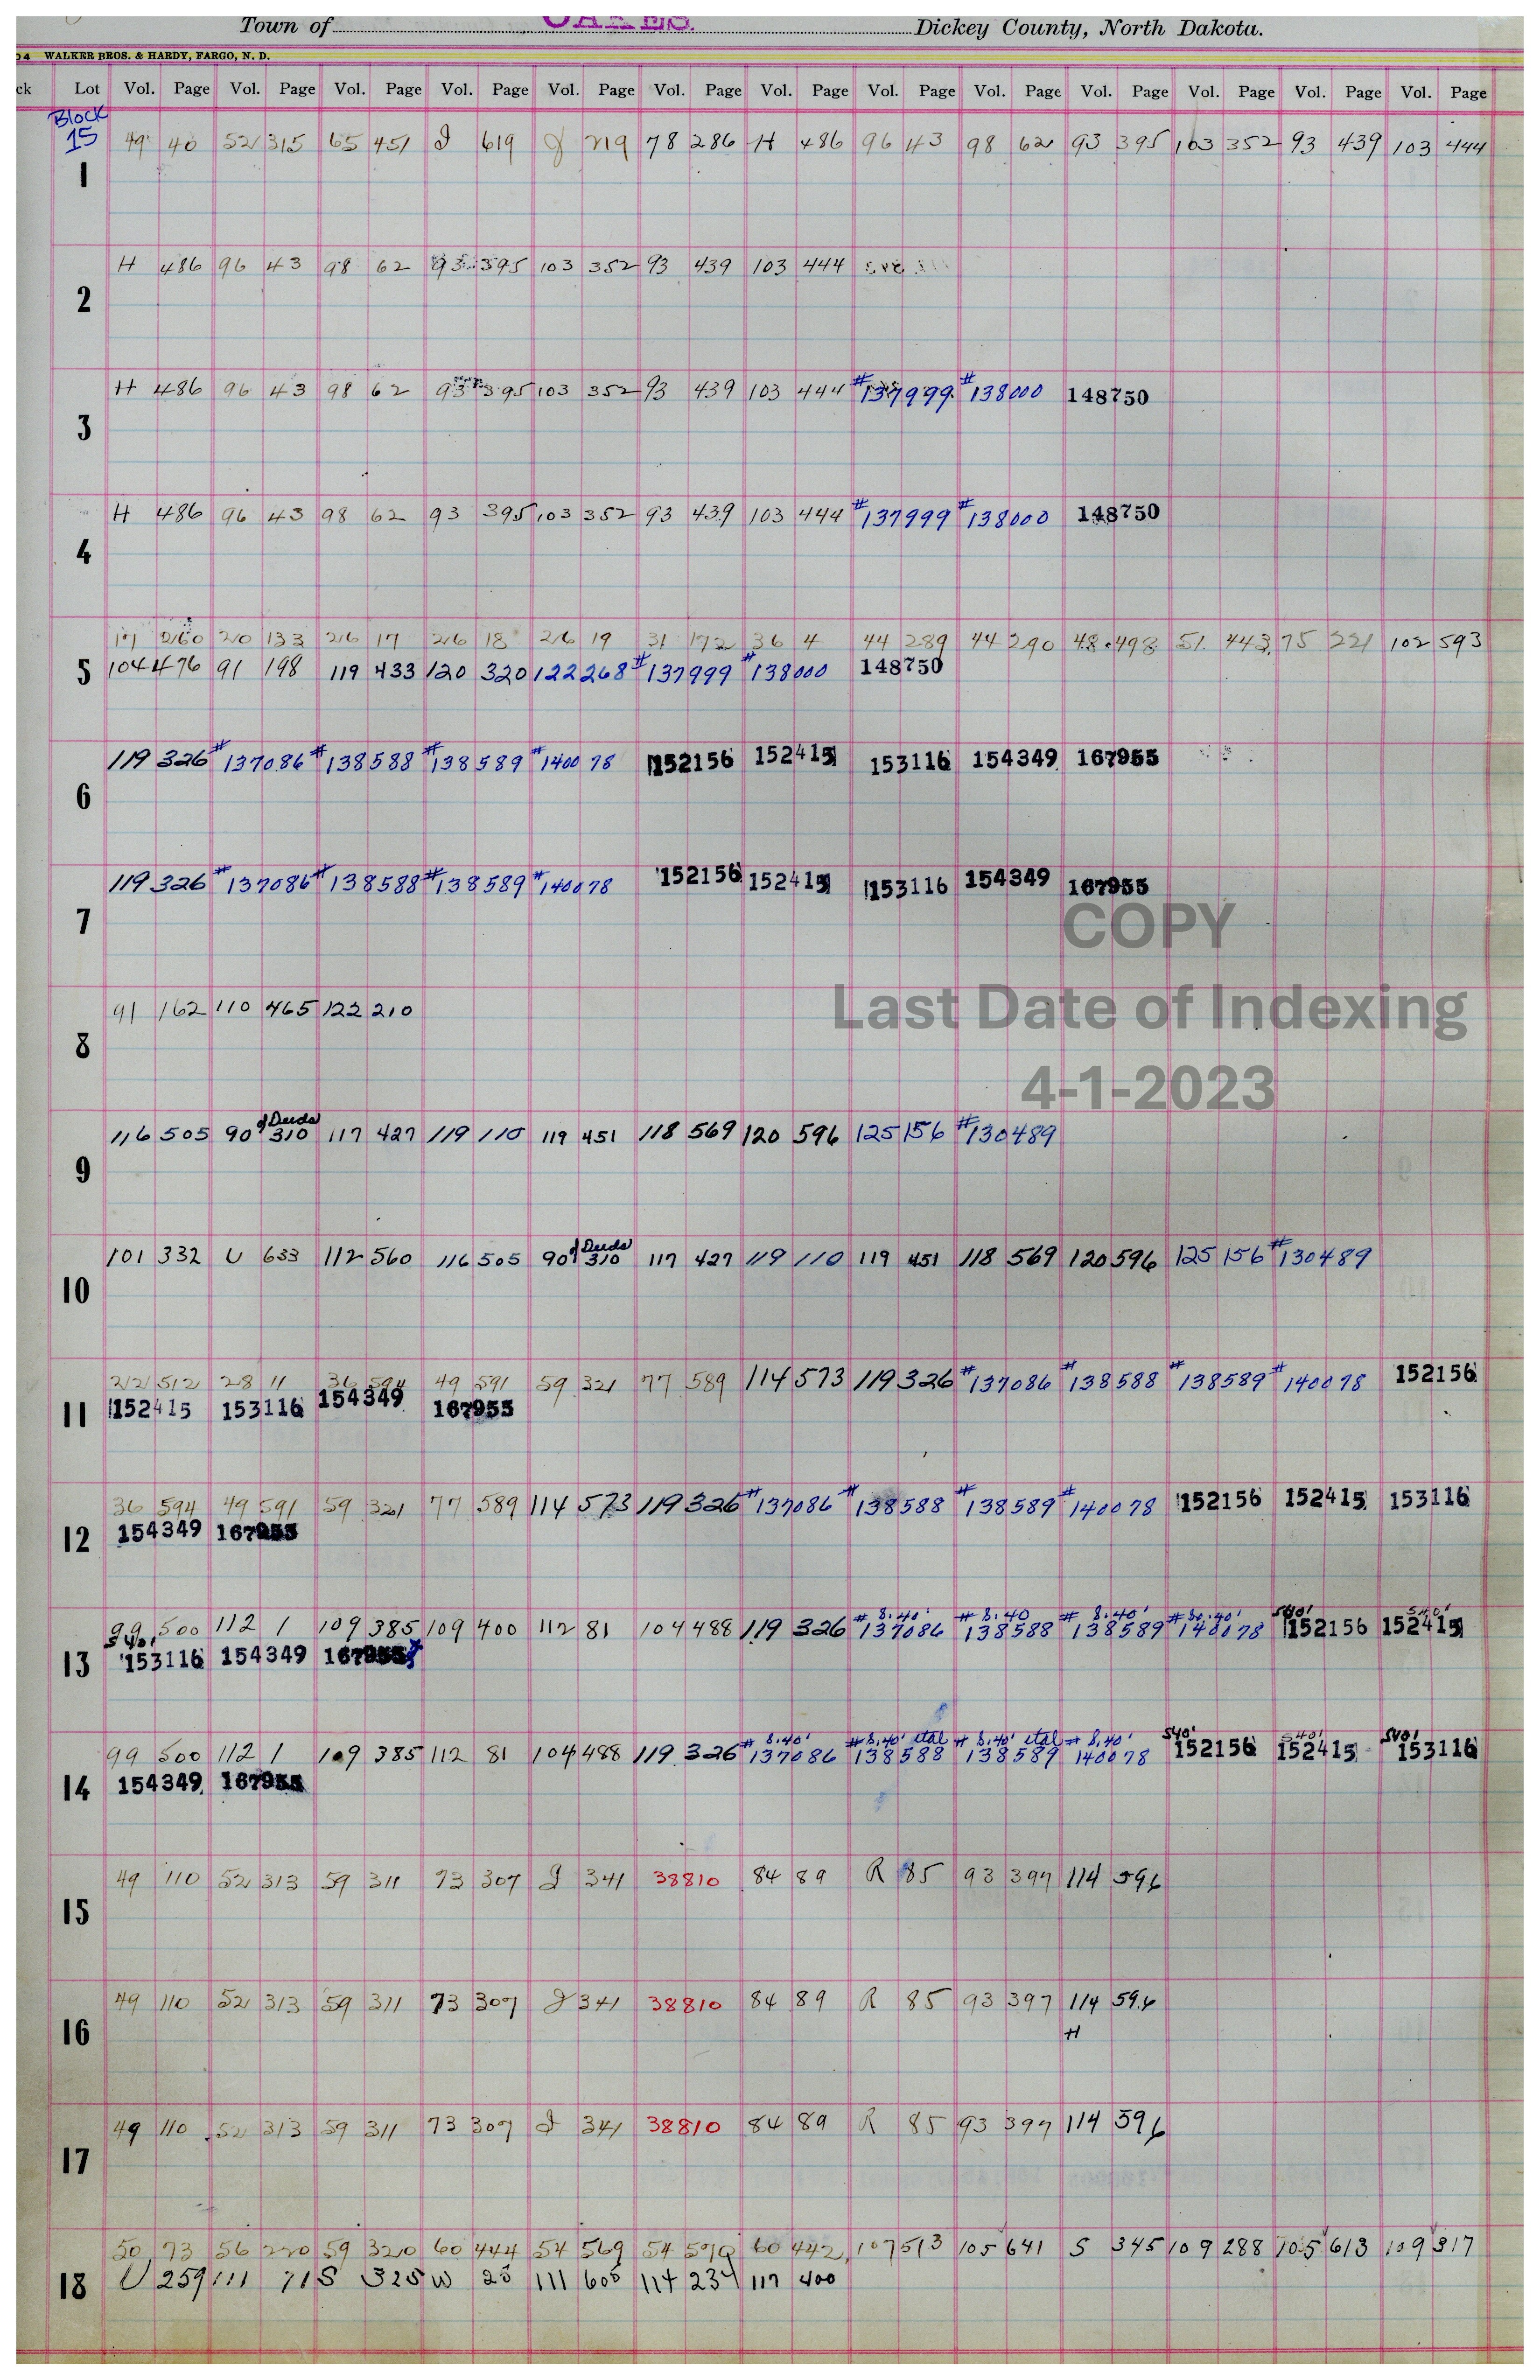 Town of OAKES. Dickey County, North Dakota.
04 WALKER BROS. & HARDY, FARGO, N. D.
ck Lot Vol. Page Vol. Page Vol. Page Vol. Page Vol. Page Vol. Page Vol. Page Vol. Page Vol. Page Vol. Page Vol. Page Vol. Page Vol. Page
Block
15
49 40 52 315 65 451 J 619 J 719 78 286 H 486 96 43 98 62 93 395 103 352 93 439 103 444
1
H 486 96 43 98 62 93 395 103 352 93 439 103 444
2
H 486 96 43 98 62 93 395 103 352 93 439 103 444 #137999 #138000 148750
3
H 486 96 43 98 62 93 395 103 352 93 439 103 444 #137999 #138000 148750
4
17 260 20 133 26 17 26 18 26 19 31 172 36 4 44 289 44 290 48 498 51 443 75 221 102 593
5 104 476 91 198 119 433 120 320 122 268 #137999 #138000 148750
119 326 #137086 #138588 #138589 #140078 152156 152415 153116 154349 167955
6
119 326 #137086 #138588 #138589 #140078 152156 152415 153116 154349 167955
7
COPY
91 162 110 465 122 210
Last Date of Indexing
8
4-1-2023
of Deeds
116 505 90 310 117 427 119 110 119 451 118 569 120 596 125 156 #130489
9
of Deeds
101 332 U 633 112 560 116 505 90 310 117 427 119 110 119 451 118 569 120 596 125 156 #130489
10
22 512 28 11 36 594 49 591 59 321 77 589 114 573 119 326 #137086 #138588 #138589 #140078 152156
11 152415 153116 154349 167955
36 594 49 591 59 321 77 589 114 573 119 326 #137086 #138588 #138589 #140078 152156 152415 153116
12 154349 167955
S.40' S.40 S.40' So.40' S40' S40'
99 500 112 1 109 385 109 400 112 81 104 488 119 326 #137086 #138588 #138589 #140078 152156 152415
S40'
13 153116 154349 167955
S.40' S.40' etal S.40' etal S.40' S40' S.40' S40'
99 500 112 1 109 385 112 81 104 488 119 326 #137086 #138588 #138589 #140078 152156 152415 153116
14 154349 167955
49 110 52 313 59 311 73 307 J 341 38810 84 89 R 85 93 397 114 596
15
49 110 52 313 59 311 73 307 J 341 38810 84 89 R 85 93 397 114 596
16 H
49 110 52 313 59 311 73 307 J 341 38810 84 89 R 85 93 397 114 596
17
50 73 56 220 59 320 60 444 54 569 54 570 60 442 107 513 105 641 S 345 109 288 105 613 109 317
18 U 259 111 71 S 325 W 25 111 605 114 234 117 400